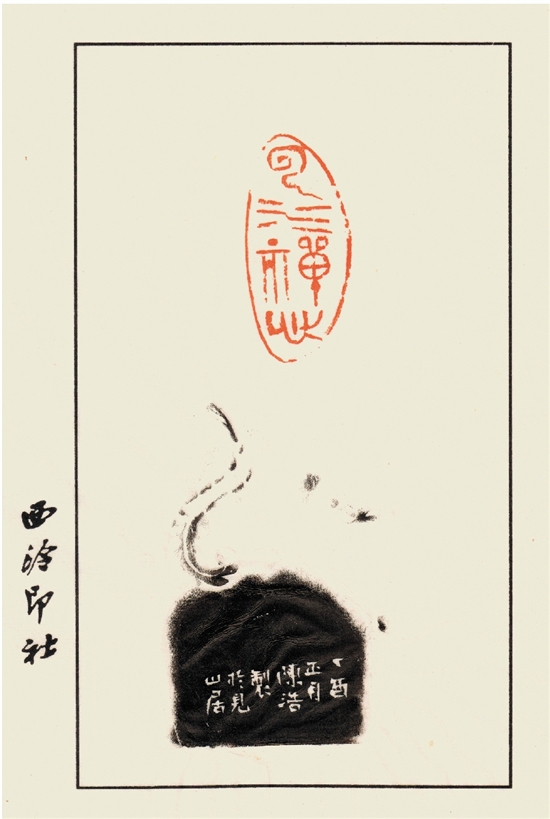 丁酉
正月
陳浩
製
於見
山居
西泠印社